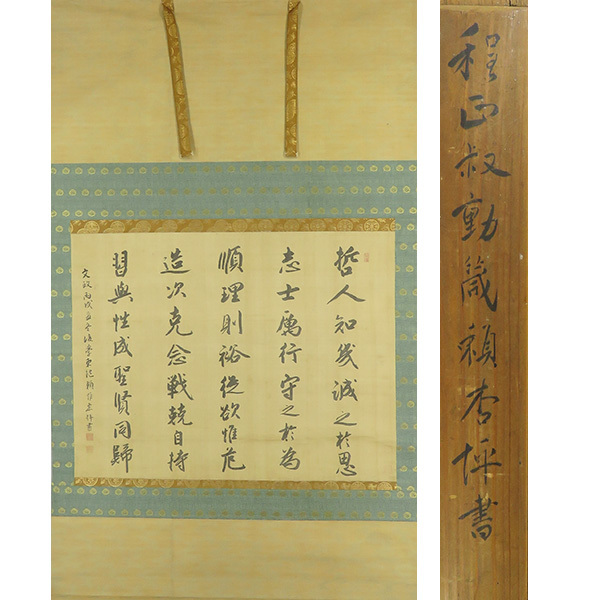 哲人知幾誠之於思
志士厲行守之於為
順理則裕從欲惟危
造次克念戰兢自持
習與性成聖賢同歸
文政丙戌
書
程正叔動箴頼杏坪書